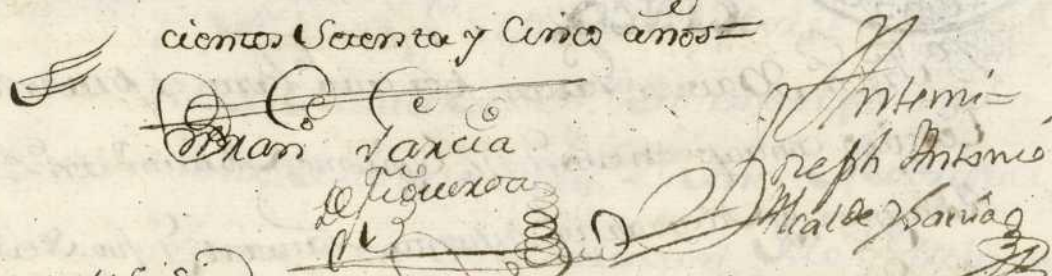 cientos Setenta y Cinco años=
Fran.co Garcia
de Figueroa
Antemi=
Joseph Antonio
Alcalde y